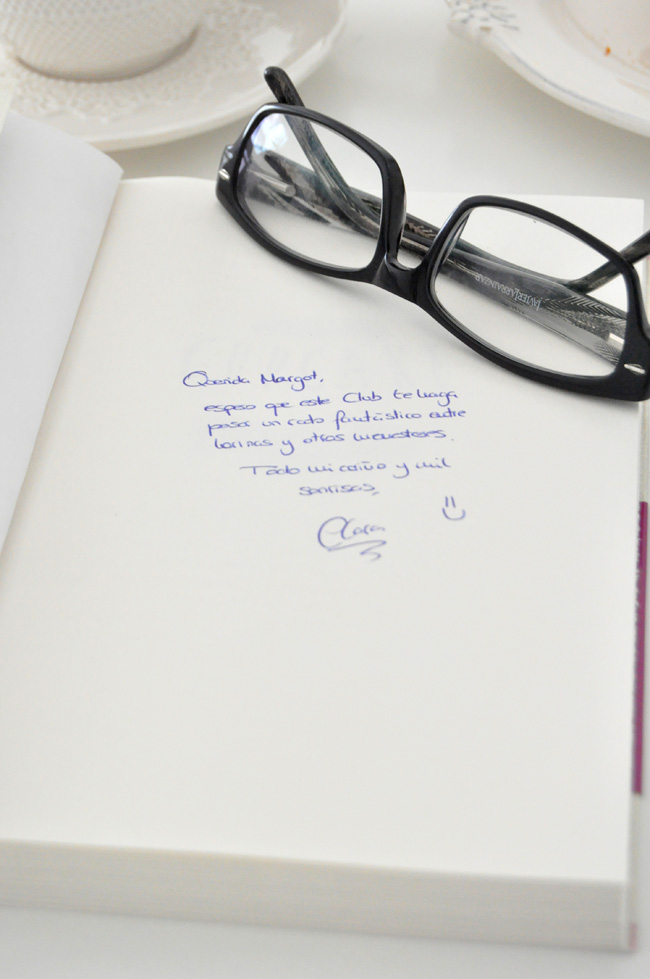 JAVIER LARRAINZAR
Querida Margot,
espero que este Club te haga
pasar un rato fantástico entre
harinas y otros menesteres.
Todo mi cariño y mil
sonrisas,
Clara